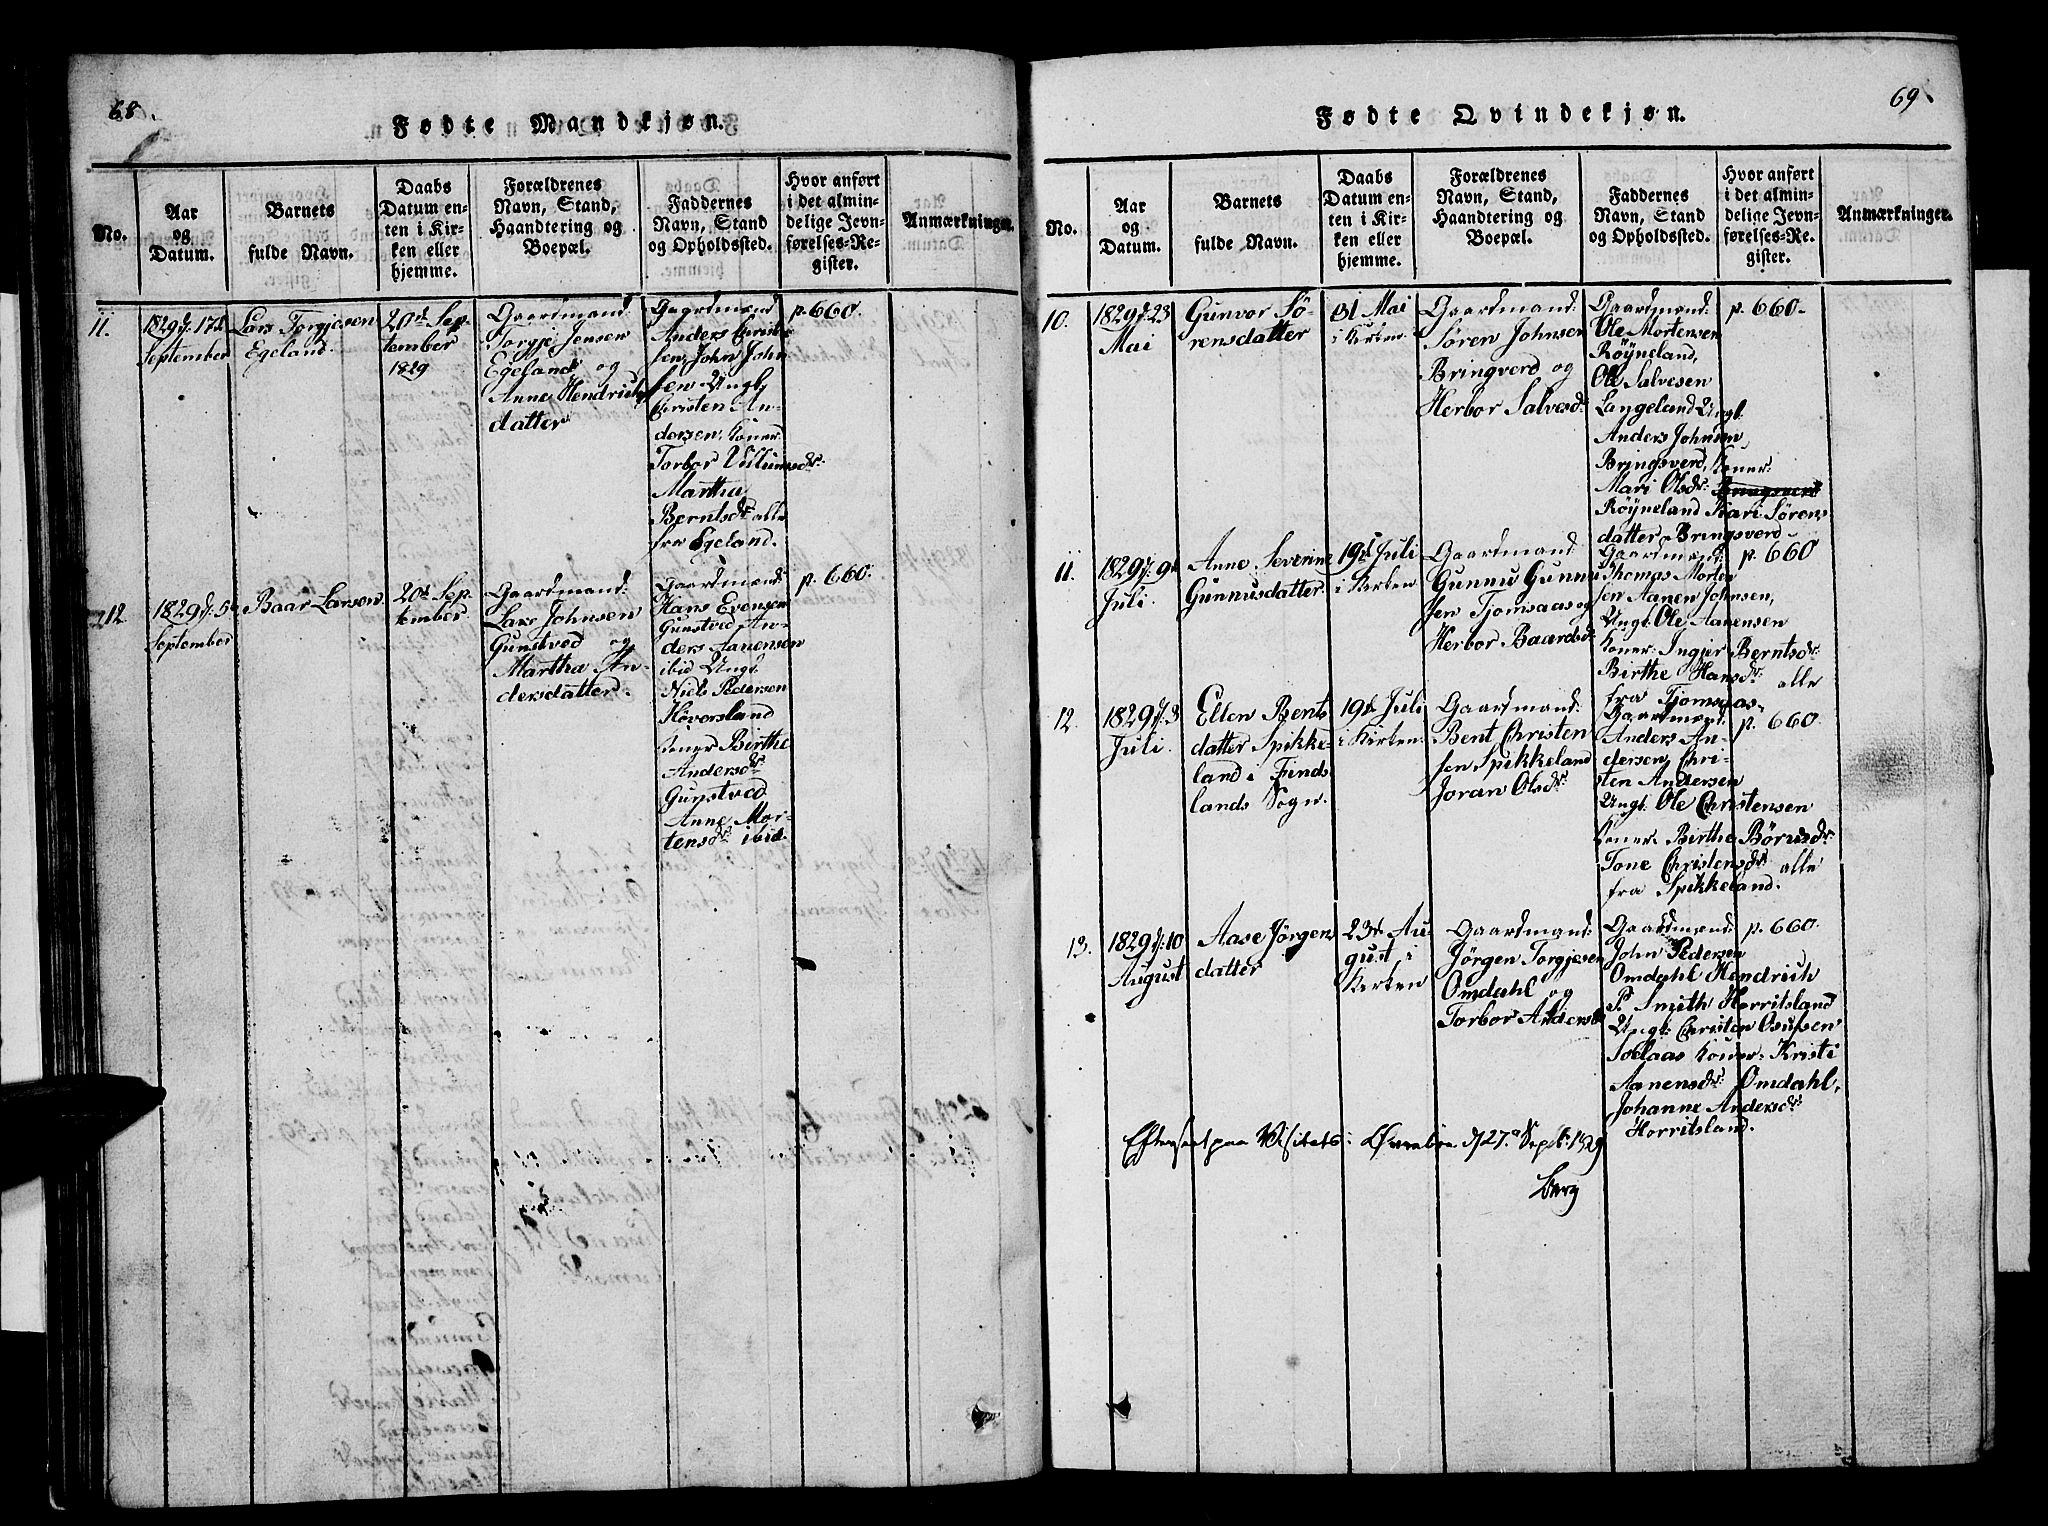 68.
Fødte Mandkjøn.
No.
Aar
og
Datum.
Barnets
fulde Navn.
Daabs
Datum en-
ten i Kir-
ken eller
hjemme.
Forældrenes
Navn, Stand,
Haandtering og
Boepæl.
Faddernes
Navn, Stand
og Opholdssted.
Hvor anført
i det almin-
delige Jevn-
førelses-Re-
gister.
Anmærkninger.
11.
1829 d: 17de
September
Lars Torgjesen
Egeland.
20d Sep-
tember
1829
Gaardmand
Torgje Jensen
Egeland og
Anne Hendrichs
datter
Gaardmænd
Anders Christen
sen, John John
sen Ungk:
Christen An-
dersen, Koner
Torbor Villumsdr:
Martha
Berntsdr alle
fra Egeland.
p. 660.
12.
1829 d: 5
September
Baar Larsen
20d Sep-
tember
Gaardmand:
Lars Johnsen
Gunstved og
Martha An-
dersdatter.
Gaardmænd:
Hans Evensen
Gunstved An-
ders Aanensen
ibid Ungk.
Niels Pedersen
Høversland
Koner Birthe
Andersdr:
Gunstved
Anne Mor-
tensdr ibid.
p. 660.
69.
Fødte Qvindekjøn.
No.
Aar
og
Datum.
Barnets
fulde Navn.
Daabs
Datum en-
ten i Kir-
ken eller
hjemme.
Forældrenes
Navn, Stand,
Haandtering og
Boepæl.
Faddernes
Navn, Stand
og Opholdssted.
Hvor anført
i det almin-
delige Jevn-
førelses-Re-
gister.
Anmærkninger.
10.
1829 d: 23
Mai
Gunvor Sö-
rensdatter
31 Mai
i Kirken
Gaardmand:
Søren Johnsen
Bringverd og
Herbor Salvesdr
Gaardmænd:
Ole Mortensen
Røyneland,
Ole Salvesen
Langeland Ungk.
Anders Johnsen,
Bringsverd, Koner:
Mari Olsdr:
Røyneland Kari Sørens
datter Bringsverd
p. 660.
11.
1829 d: 9d
Juli.
Anne Severine
Gunnusdatter
19d Juli
i Kirken
Gaardmand
Gunnu Gunnu
sen Tjomsaas og
Herbor Baardsdr
Gaardmænd:
Thomas Morten
sen Aanen Johnsen,
Ungk: Ole Aanensen
Koner: Ingjer Berntsdr:
Birthe Hansdr: alle
fra Tjomsaas.
p. 660
12.
1829 d: 3
Juli.
Ellen Bents
datter Spikke-
land i Finds
lands Sogn.
19d Juli
i Kirken.
Gaardmand:
Bent Christen
sen Spikkeland
Joran Olsdr:
Gaardmænd
Anders An-
dersen, Chri-
sten Andersen
Ungk: Ole Christensen
Koner: Birthe Börusdr:
Tone Christensdr: alle
fra Spikkeland.
p. 660.
13.
1829 d: 10
August
Aase Jörgens
datter
23d Au
gust i
Kirken
Gaardmand:
Jörgen Torgjesen
Omdahl og
Torbor Andersdr
Gaardmænd:
John Pedersen
Omdahl Hendrich
P. Smith Horritsland
Ungk: Christen Osufsen
Koner: Kristi
Aanensdr: Omdahl,
Johanne Andersdr:
Horritsland.
p. 660.
Efterseet paa Visitats: Øvrebøe d 27. Sept: 1829
Berg